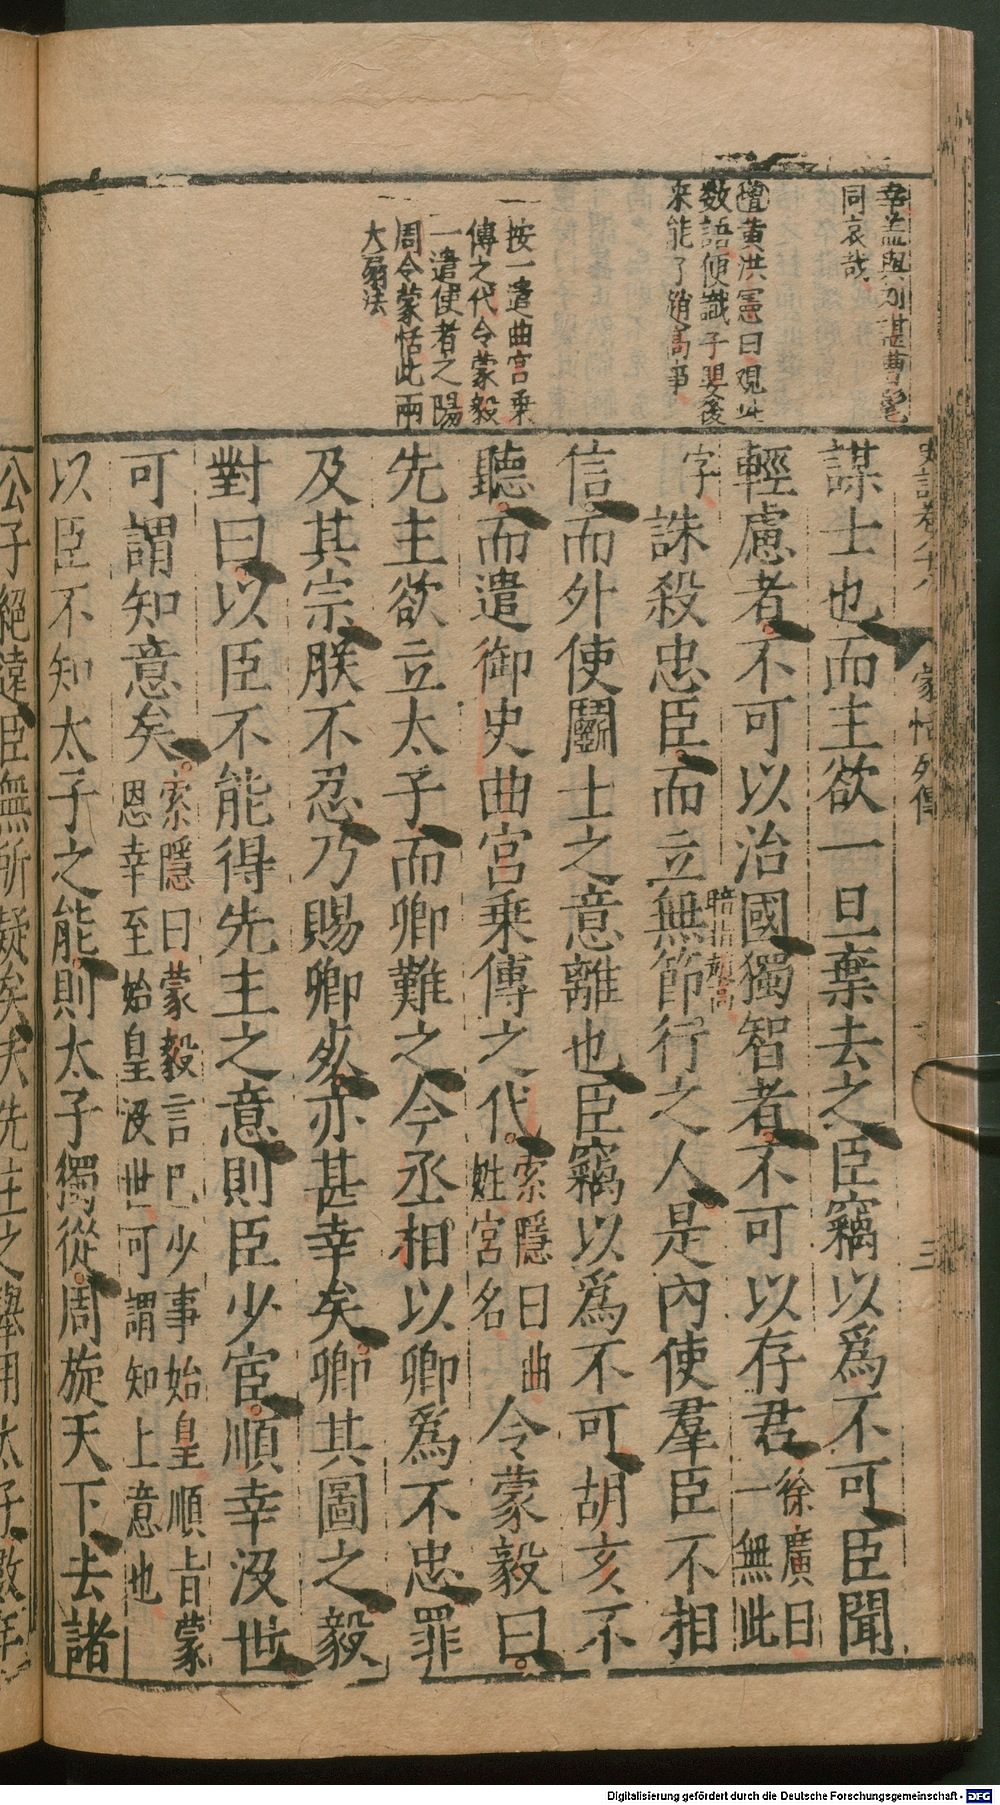 同哀哉
黄洪憲曰觀此
数語便識子嬰後
来能了趙高事
按一遣曲宮乗
傳之代令蒙毅
一遣使者之陽
周令蒙恬此兩
大㬱法
蒙恬列傳
三
謀士也而主欲一旦棄去之臣竊以爲不可臣聞
輕慮者不可以治國獨智者不可以存君徐廣曰一無此
字誅殺忠臣而立無節行之人是內使羣臣不相
暗指趙高
信而外使鬭士之意離也臣竊以爲不可胡亥不
聽而遣御史曲宮乗傳之代索隱曰曲姓宮名令蒙毅曰
先主欲立太子而卿難之今丞相以卿爲不忠罪
及其宗朕不忍乃賜卿死亦甚幸矣卿其圖之毅
對曰以臣不能得先主之意則臣少宦順幸没世
可謂知意矣索隱曰蒙毅言巳少事始皇順旨蒙恩幸至始皇没世可謂知上意也
以臣不知太子之能則太子獨從周旋天下去諸
公子絕遠臣無所疑矣夫先主之舉用太子數年
Digitalisierung gefördert durch die Deutsche Forschungsgemeinschaft - DFG